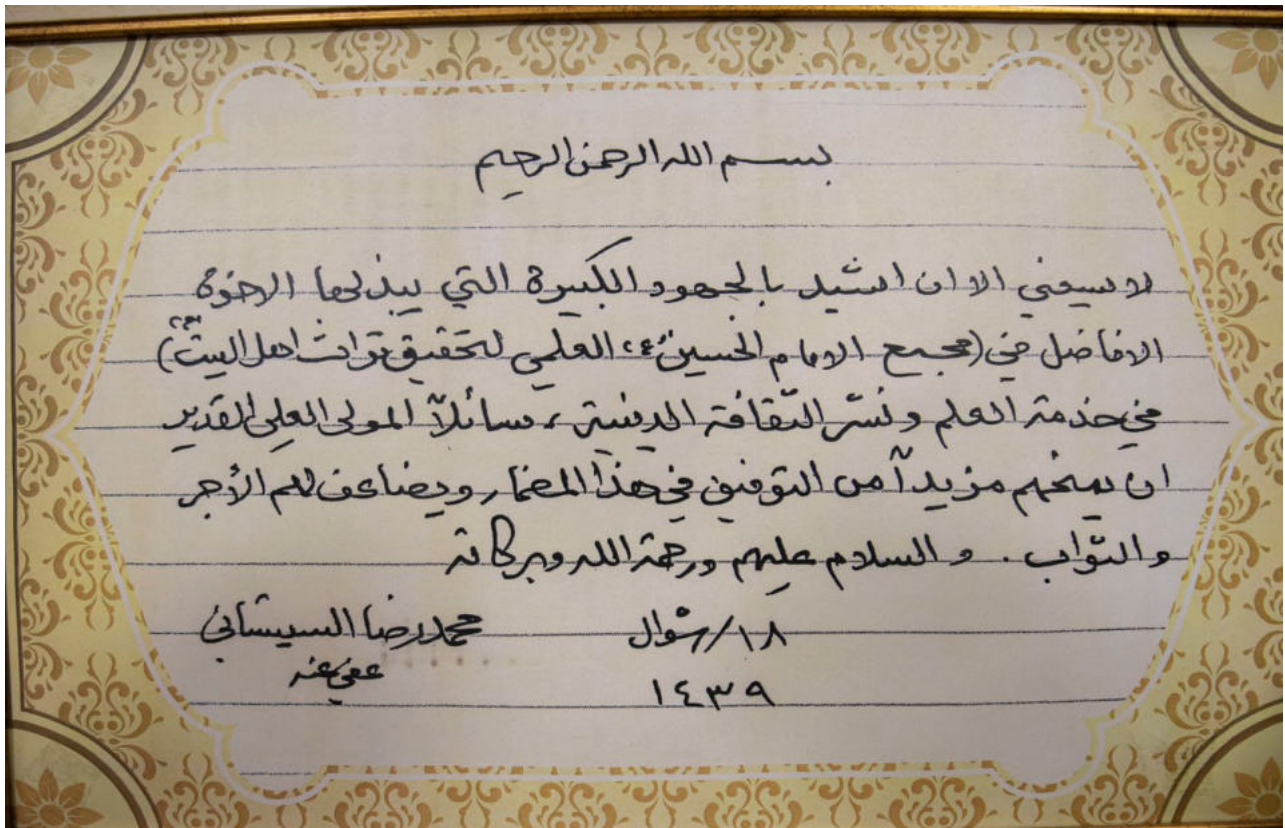 بسم الله الرحمن الرحيم
لا يسعني الا ان اشيد بالجهود الكبيرة التي يبذلها الاخوة
الافاضل في (مجمع الامام الحسين «ع» العلمي لتحقيق تراث اهل البيت «ع»)
في خدمة العلم ونشر الثقافة الدينية ، سائلاً المولى العلي القدير
ان يمنحهم مزيداً من التوفيق في هذا المضمار ويضاعف لهم الأجر
والثواب . والسلام عليهم ورحمة الله وبركاته
١٨/شوال محمد رضا السيستاني
١٤٣٩ عفي عنه